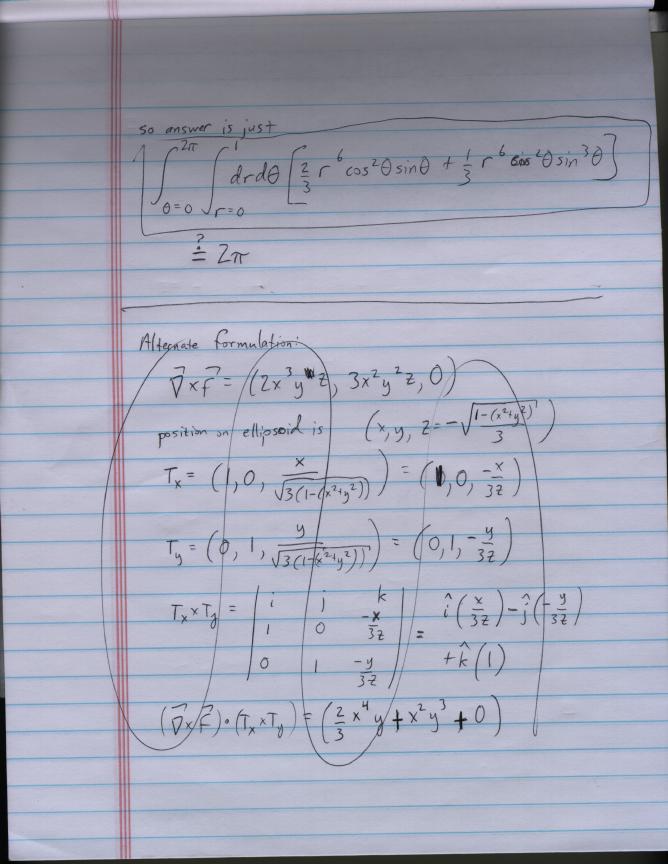 so answer is just
∫_{θ=0}^{2π} ∫_{r=0}^{1} drdθ [ 2/3 r^6 cos²θ sinθ + 1/3 r^6 cos²θ sin³θ ]
≟ 2π
Alternate formulation:
∇⃗×F⃗ = (2x³yz, 3x²y²z, 0)
position on ellipsoid is (x, y, z=-√((1-(x²+y²))/3))
T_x = (1, 0, x/√(3(1-(x²+y²)))) = (1, 0, -x/3z)
T_y = (0, 1, y/√(3(1-(x²+y²)))) = (0, 1, -y/3z)
T_x × T_y = | i j k | = î(x/3z) - ĵ(-y/3z)
| 1 0 -x/3z |
| 0 1 -y/3z | + k̂(1)
(∇⃗×F⃗)·(T_x×T_y) = (2/3 x⁴y + x²y³ + 0)